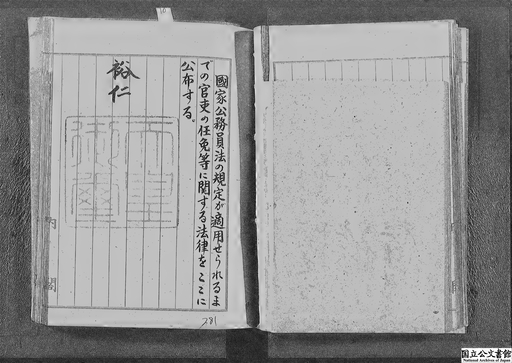 國家公務員法の規定が適用せられるま
での官吏の任免等に関する法律をここに
公布する。
裕仁
天皇御璽
内閣
281
国立公文書館
National Archives of Japan